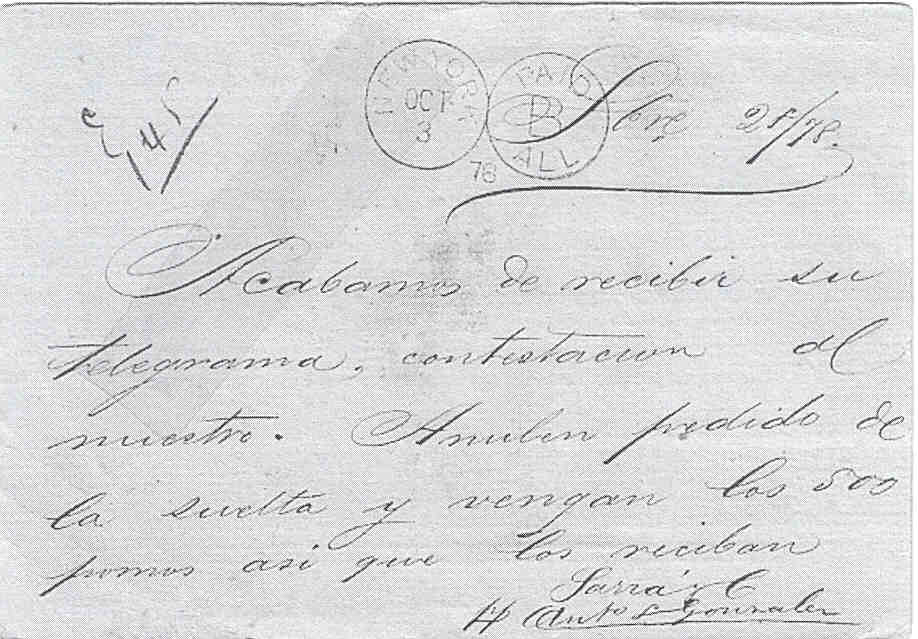 NEW YORK
OCT
3
78
PAID
ALL
Sbre 28/78.
Acabamos de recibir su
telegrama, contestacion al
nuestro. Anulen pedido de
la suelta y vengan los 500
pomos asi que los reciban
Sarrá y C
Anto L Gonzalez